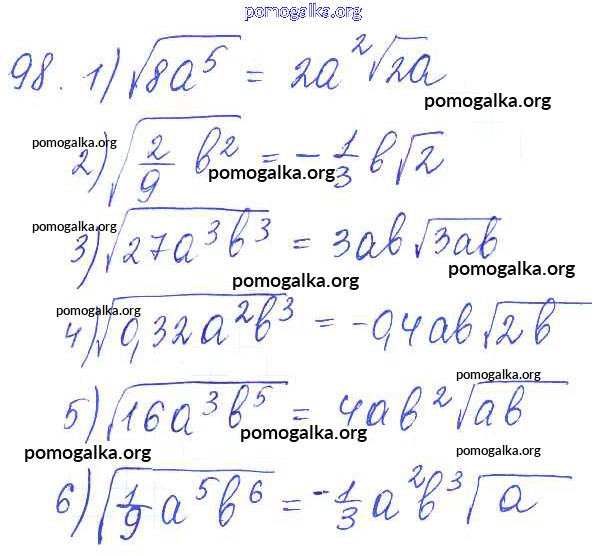 pomogalka.org
98. 1) √8a⁵ = 2a²√2a
pomogalka.org
pomogalka.org
2) √2/9 b² = -1/3 b√2
pomogalka.org
pomogalka.org
3) √27a³b³ = 3ab√3ab
pomogalka.org
pomogalka.org
pomogalka.org
4) √0,32a²b³ = -0,4ab√2b
pomogalka.org
5) √16a³b⁵ = 4ab²√ab
pomogalka.org
pomogalka.org
6) √1/9 a⁵b⁶ = -1/3 a²b³√a